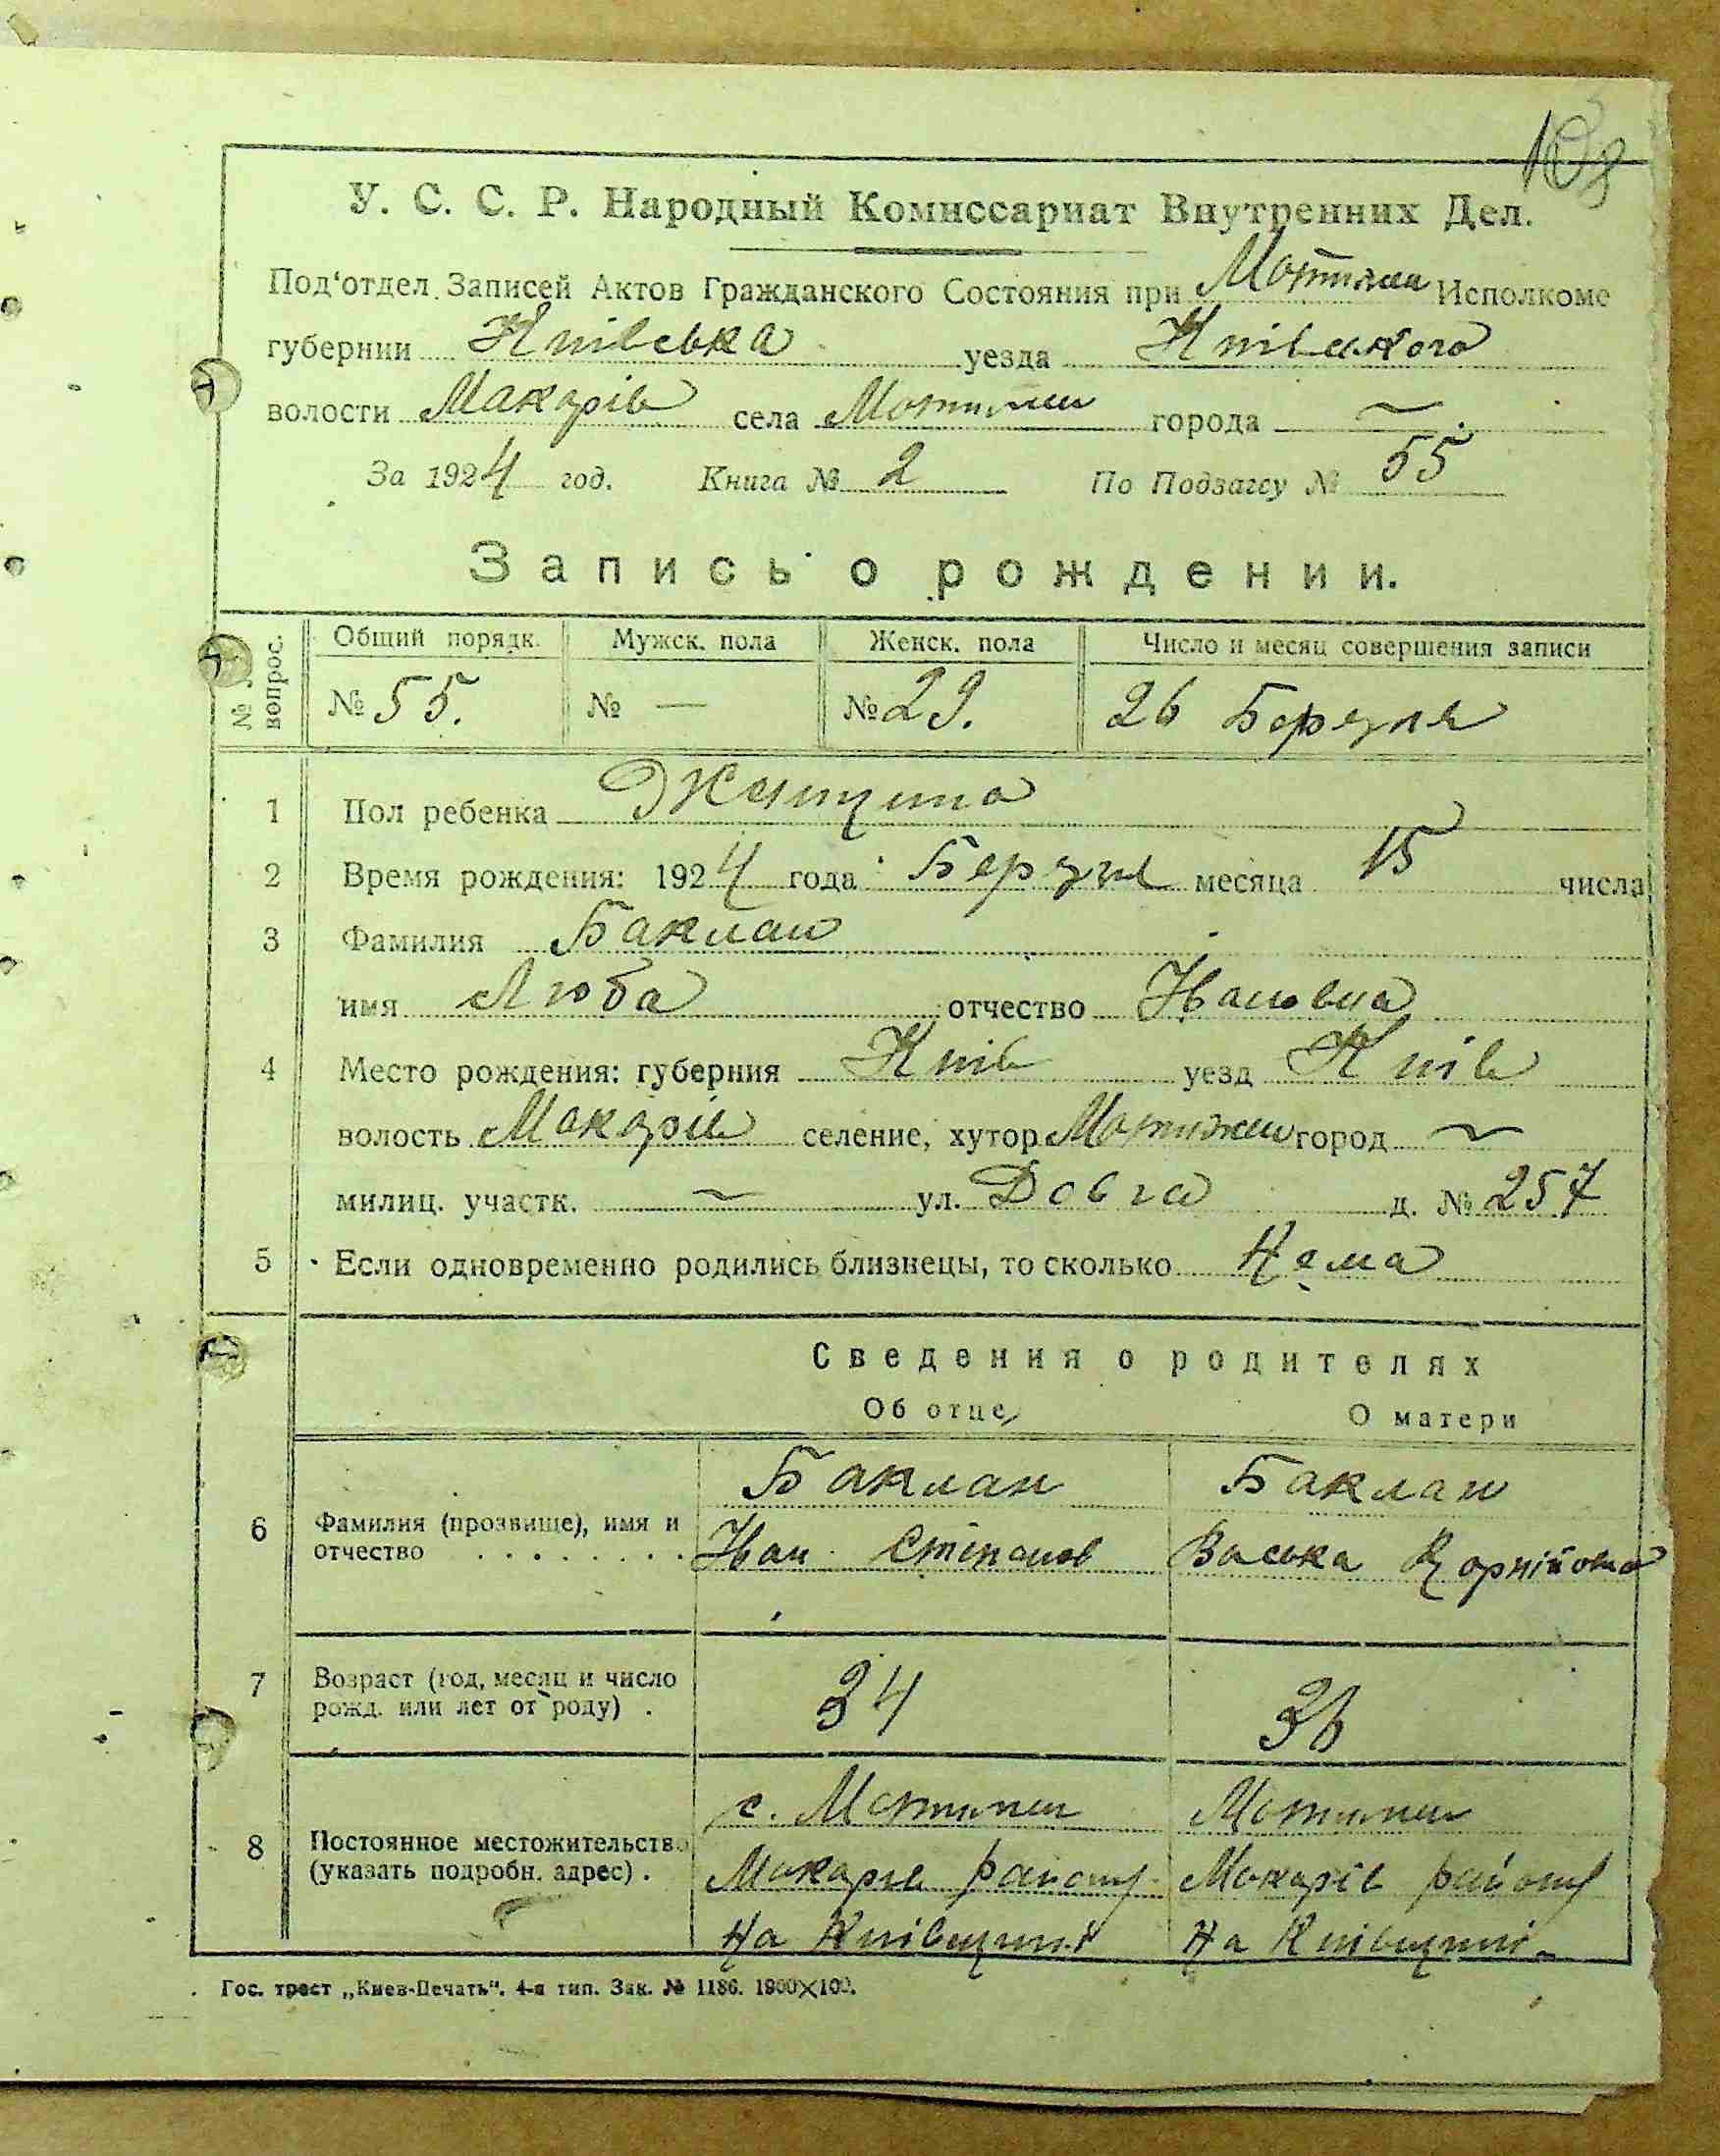 103
У. С. С. Р. Народный Комиссариат Внутренних Дел.
Под'отдел Записей Актов Гражданского Состояния при Мотижин Исполкоме
губернии Київська уезда Київського
волости Макарів села Мотижин города ~
За 1924 год. Книга № 2 По Подзагсу № 55
Запись о рождении.
№ вопрос. Общий порядк. Мужск. пола Женск. пола Число и месяц совершения записи
№ 55. № — № 29. 26 Березня
1 Пол ребенка Жинщина
2 Время рождения: 1924 года Березня месяца 15 числа
3 Фамилия Баклан
имя Люба отчество Івановна
4 Место рождения: губерния Київ уезд Київ
волость Макарів селение, хутор Мотижин город ~
милиц. участк. ~ ул. Довга д. № 257
5 Если одновременно родились близнецы, то сколько Нема
Сведения о родителях
Об отце О матери
Баклан Баклан
6 Фамилия (прозвище), имя и Іван Степанов Васька Корнійовна
отчество . . . . . . . . .
7 Возраст (год, месяц и число 34 36
рожд. или лет от роду) .
с. Мотижин Мотижин
8 Постоянное местожительство Макарів району Макарів району
(указать подробн. адрес) .
На Київщині На Київщині
Гос. трест „Киев-Печать“. 4-я тип. Зак. № 1186. 1900×100.